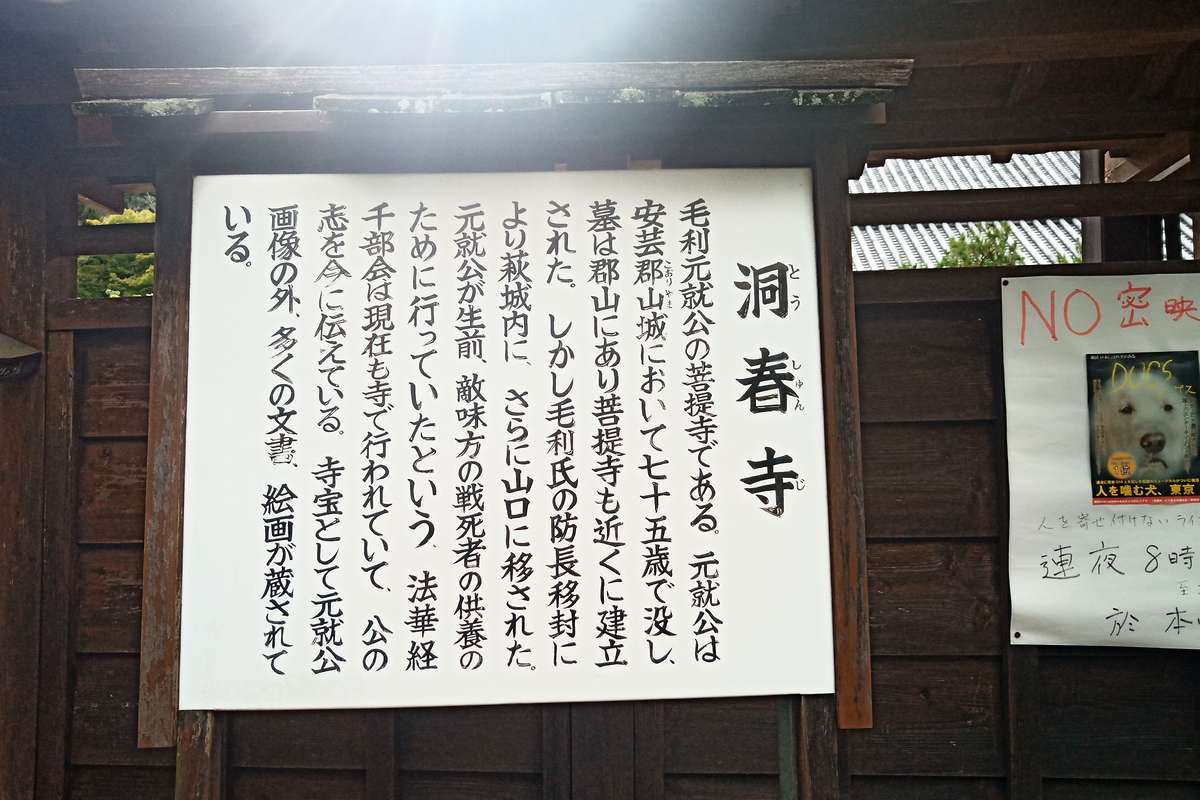 洞春寺
とうしゅんじ
毛利元就公の菩提寺である。元就公は
安芸郡山城において七十五歳で没し、
こおりやま
墓は郡山にあり菩提寺も近くに建立
された。しかし毛利氏の防長移封に
より萩城内に、さらに山口に移された。
元就公が生前、敵味方の戦死者の供養の
ために行っていたという、法華経
千部会は現在も寺で行われていて、公の
志を今に伝えている。寺宝として元就公
画像の外、多くの文書、絵画が蔵されて
いる。
NO 密 映
DOGS
1位
人を噛む犬、東京
人を寄せ付けないライ
連夜8時
至
於 本